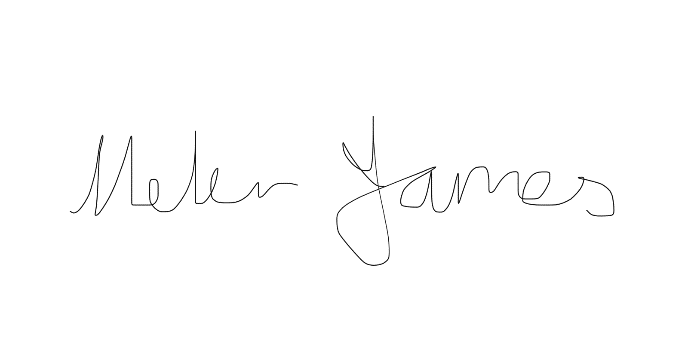 Helen James